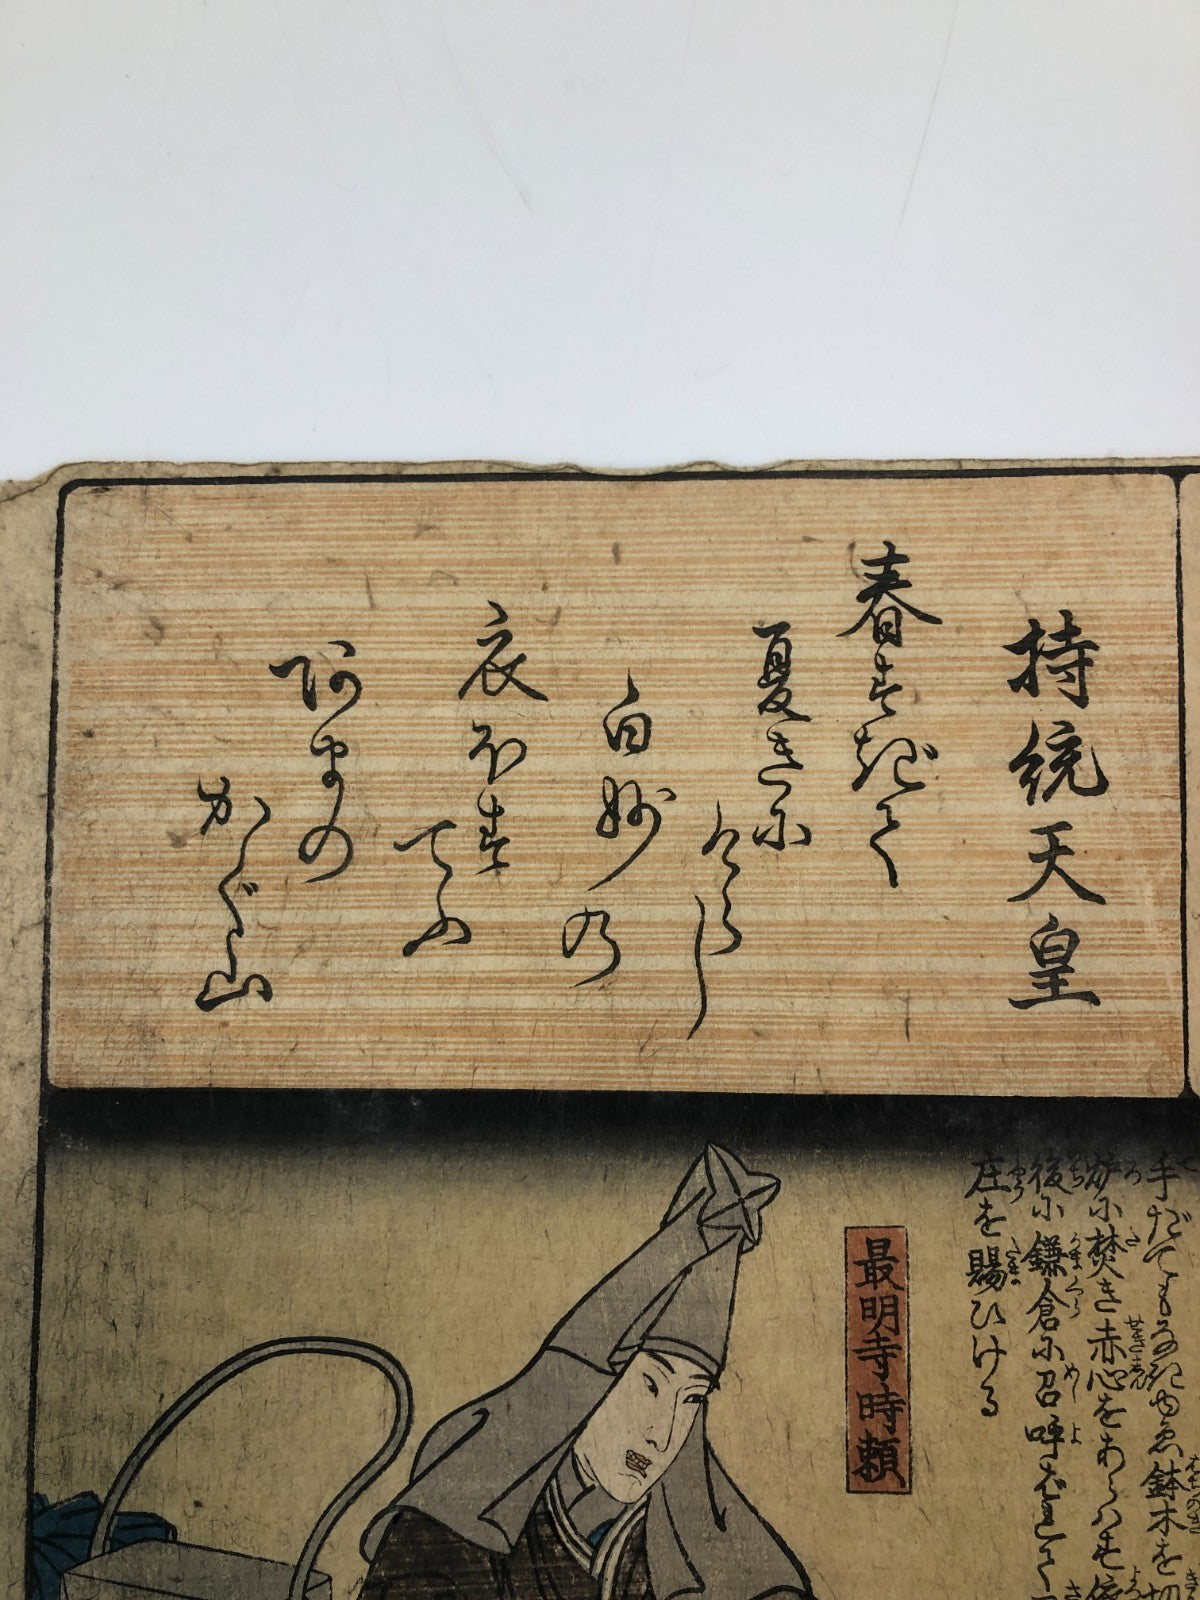 持統天皇
春すぎて
夏きに
けらし
白妙の
衣ほす
てふ
阿まの
かぐ山
手だても
鉢木を切
炉に焚き赤心をあらはす
後に鎌倉に召呼
庄を賜ひける
最明寺時頼